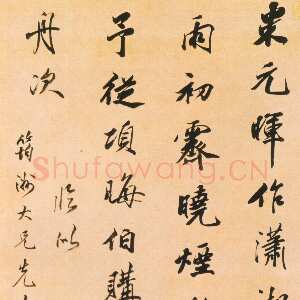 米元暉作瀟湘
雨初霽曉煙
予從項晦伯購
舟次
臨似
筠洲大兄先生
Shufawang.CN